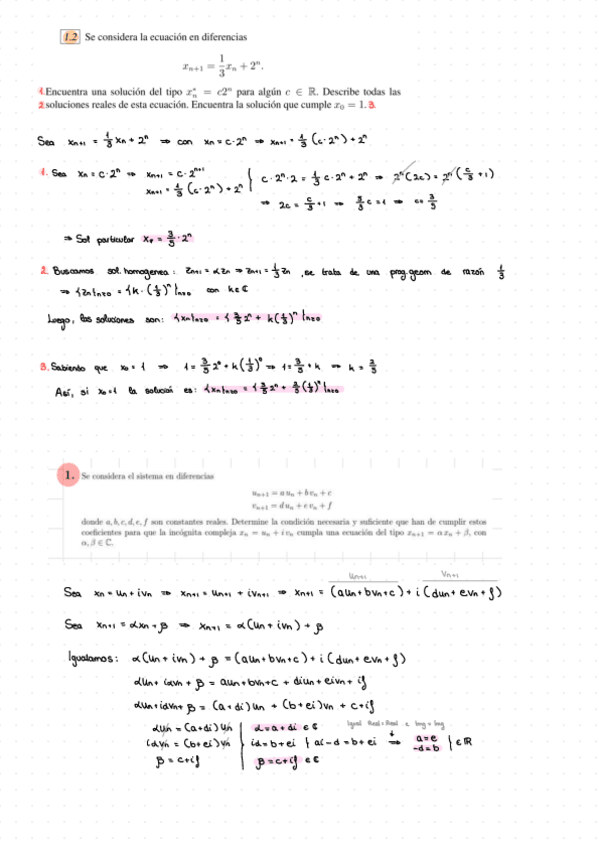 1.2 Se considera la ecuación en diferencias
x_{n+1} = 1/3 x_n + 2^n.
1. Encuentra una solución del tipo x*_n = c2^n para algún c ∈ ℝ. Describe todas las
2. soluciones reales de esta ecuación. Encuentra la solución que cumple x_0 = 1. 3.
Sea x_{n+1} = 1/3 x_n + 2^n ⇒ con x_n = c·2^n ⇒ x_{n+1} = 1/3 (c·2^n) + 2^n
1. Sea x_n = c·2^n ⇒ x_{n+1} = c·2^{n+1}
x_{n+1} = 1/3 (c·2^n) + 2^n } c·2^n·2 = 1/3 c·2^n + 2^n ⇒ 2^n (2c) = 2^n (c/3 + 1)
⇒ 2c = c/3 + 1 ⇒ 5/3 c = 1 ⇒ c = 3/5
⇒ Sol particular x_p = 3/5 · 2^n
2. Buscamos sol. homogenea: z_{n+1} = αz_n ⇒ z_{n+1} = 1/3 z_n , se trata de una prog. geom de razón 1/3
⇒ {z_n}_{n≥0} = {k·(1/3)^n}_{n≥0} con k∈ℂ
Luego, las soluciones son: {x_n}_{n≥0} = {3/5 2^n + k(1/3)^n}_{n≥0}
3. Sabiendo que x_0 = 1 ⇒ 1 = 3/5 2^0 + k(1/3)^0 ⇒ 1 = 3/5 + k ⇒ k = 2/5
Así, si x_0=1 la solución es: {x_n}_{n≥0} = {3/5 2^n + 2/5 (1/3)^n}_{n≥0}
1. Se considera el sistema en diferencias
u_{n+1} = a u_n + b v_n + c
v_{n+1} = d u_n + e v_n + f
donde a, b, c, d, e, f son constantes reales. Determine la condición necesaria y suficiente que han de cumplir estos
coeficientes para que la incógnita compleja x_n = u_n + i v_n cumpla una ecuación del tipo x_{n+1} = α x_n + β, con
α, β ∈ ℂ.
u_{n+1} v_{n+1}
Sea x_n = u_n + iv_n ⇒ x_{n+1} = u_{n+1} + iv_{n+1} ⇒ x_{n+1} = (au_n + bv_n + c) + i (du_n + ev_n + f)
Sea x_{n+1} = αx_n + β ⇒ x_{n+1} = α(u_n + iv_n) + β
Igualamos: α(u_n + iv_n) + β = (au_n + bv_n + c) + i (du_n + ev_n + f)
αu_n + iαv_n + β = au_n + bv_n + c + diu_n + eiv_n + if
αu_n + iαv_n + β = (a + di) u_n + (b + ei) v_n + c + if
Igual Real = Real e Img = Img
αu_n = (a+di) u_n | α = a + di ∈ ℂ
iαv_n = (b+ei) v_n | iα = b + ei } ai - d = b + ei ⇒ a = e
-d = b } ∈ ℝ
β = c + if | β = c + if ∈ ℂ